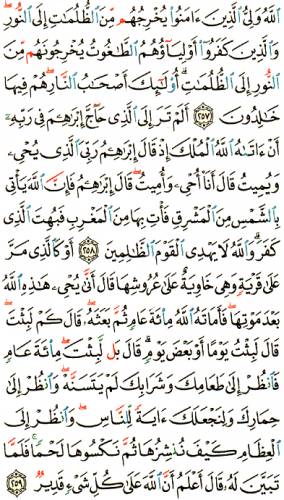 ٱللَّهُ وَلِيُّ ٱلَّذِينَ ءَامَنُوا۟ يُخْرِجُهُم مِّنَ ٱلظُّلُمَٰتِ إِلَى ٱلنُّورِ ۖ
وَٱلَّذِينَ كَفَرُوٓا۟ أَوْلِيَآؤُهُمُ ٱلطَّٰغُوتُ يُخْرِجُونَهُم مِّنَ
ٱلنُّورِ إِلَى ٱلظُّلُمَٰتِ ۗ أُو۟لَٰٓئِكَ أَصْحَٰبُ ٱلنَّارِ ۖ هُمْ فِيهَا
خَٰلِدُونَ ﴿٢٥٧﴾ أَلَمْ تَرَ إِلَى ٱلَّذِى حَآجَّ إِبْرَٰهِۦمَ فِى رَبِّهِۦٓ
أَنْ ءَاتَىٰهُ ٱللَّهُ ٱلْمُلْكَ إِذْ قَالَ إِبْرَٰهِۦمُ رَبِّىَ ٱلَّذِى يُحْىِۦ
وَيُمِيتُ قَالَ أَنَا۠ أُحْىِۦ وَأُمِيتُ ۖ قَالَ إِبْرَٰهِۦمُ فَإِنَّ ٱللَّهَ يَأْتِى
بِٱلشَّمْسِ مِنَ ٱلْمَشْرِقِ فَأْتِ بِهَا مِنَ ٱلْمَغْرِبِ فَبُهِتَ ٱلَّذِى
كَفَرَ ۗ وَٱللَّهُ لَا يَهْدِى ٱلْقَوْمَ ٱلظَّٰلِمِينَ ﴿٢٥٨﴾ أَوْ كَٱلَّذِى مَرَّ
عَلَىٰ قَرْيَةٍ وَهِىَ خَاوِيَةٌ عَلَىٰ عُرُوشِهَا قَالَ أَنَّىٰ يُحْىِۦ هَٰذِهِ ٱللَّهُ
بَعْدَ مَوْتِهَا ۖ فَأَمَاتَهُ ٱللَّهُ مِا۟ئَةَ عَامٍ ثُمَّ بَعَثَهُۥ ۖ قَالَ كَمْ لَبِثْتَ ۖ
قَالَ لَبِثْتُ يَوْمًا أَوْ بَعْضَ يَوْمٍ ۖ قَالَ بَل لَّبِثْتَ مِا۟ئَةَ عَامٍ
فَٱنظُرْ إِلَىٰ طَعَامِكَ وَشَرَابِكَ لَمْ يَتَسَنَّهْ ۖ وَٱنظُرْ إِلَىٰ
حِمَارِكَ وَلِنَجْعَلَكَ ءَايَةً لِّلنَّاسِ ۖ وَٱنظُرْ إِلَى
ٱلْعِظَامِ كَيْفَ نُنشِزُهَا ثُمَّ نَكْسُوهَا لَحْمًا ۚ فَلَمَّا
تَبَيَّنَ لَهُۥ قَالَ أَعْلَمُ أَنَّ ٱللَّهَ عَلَىٰ كُلِّ شَىْءٍ قَدِيرٌ ﴿٢٥٩﴾